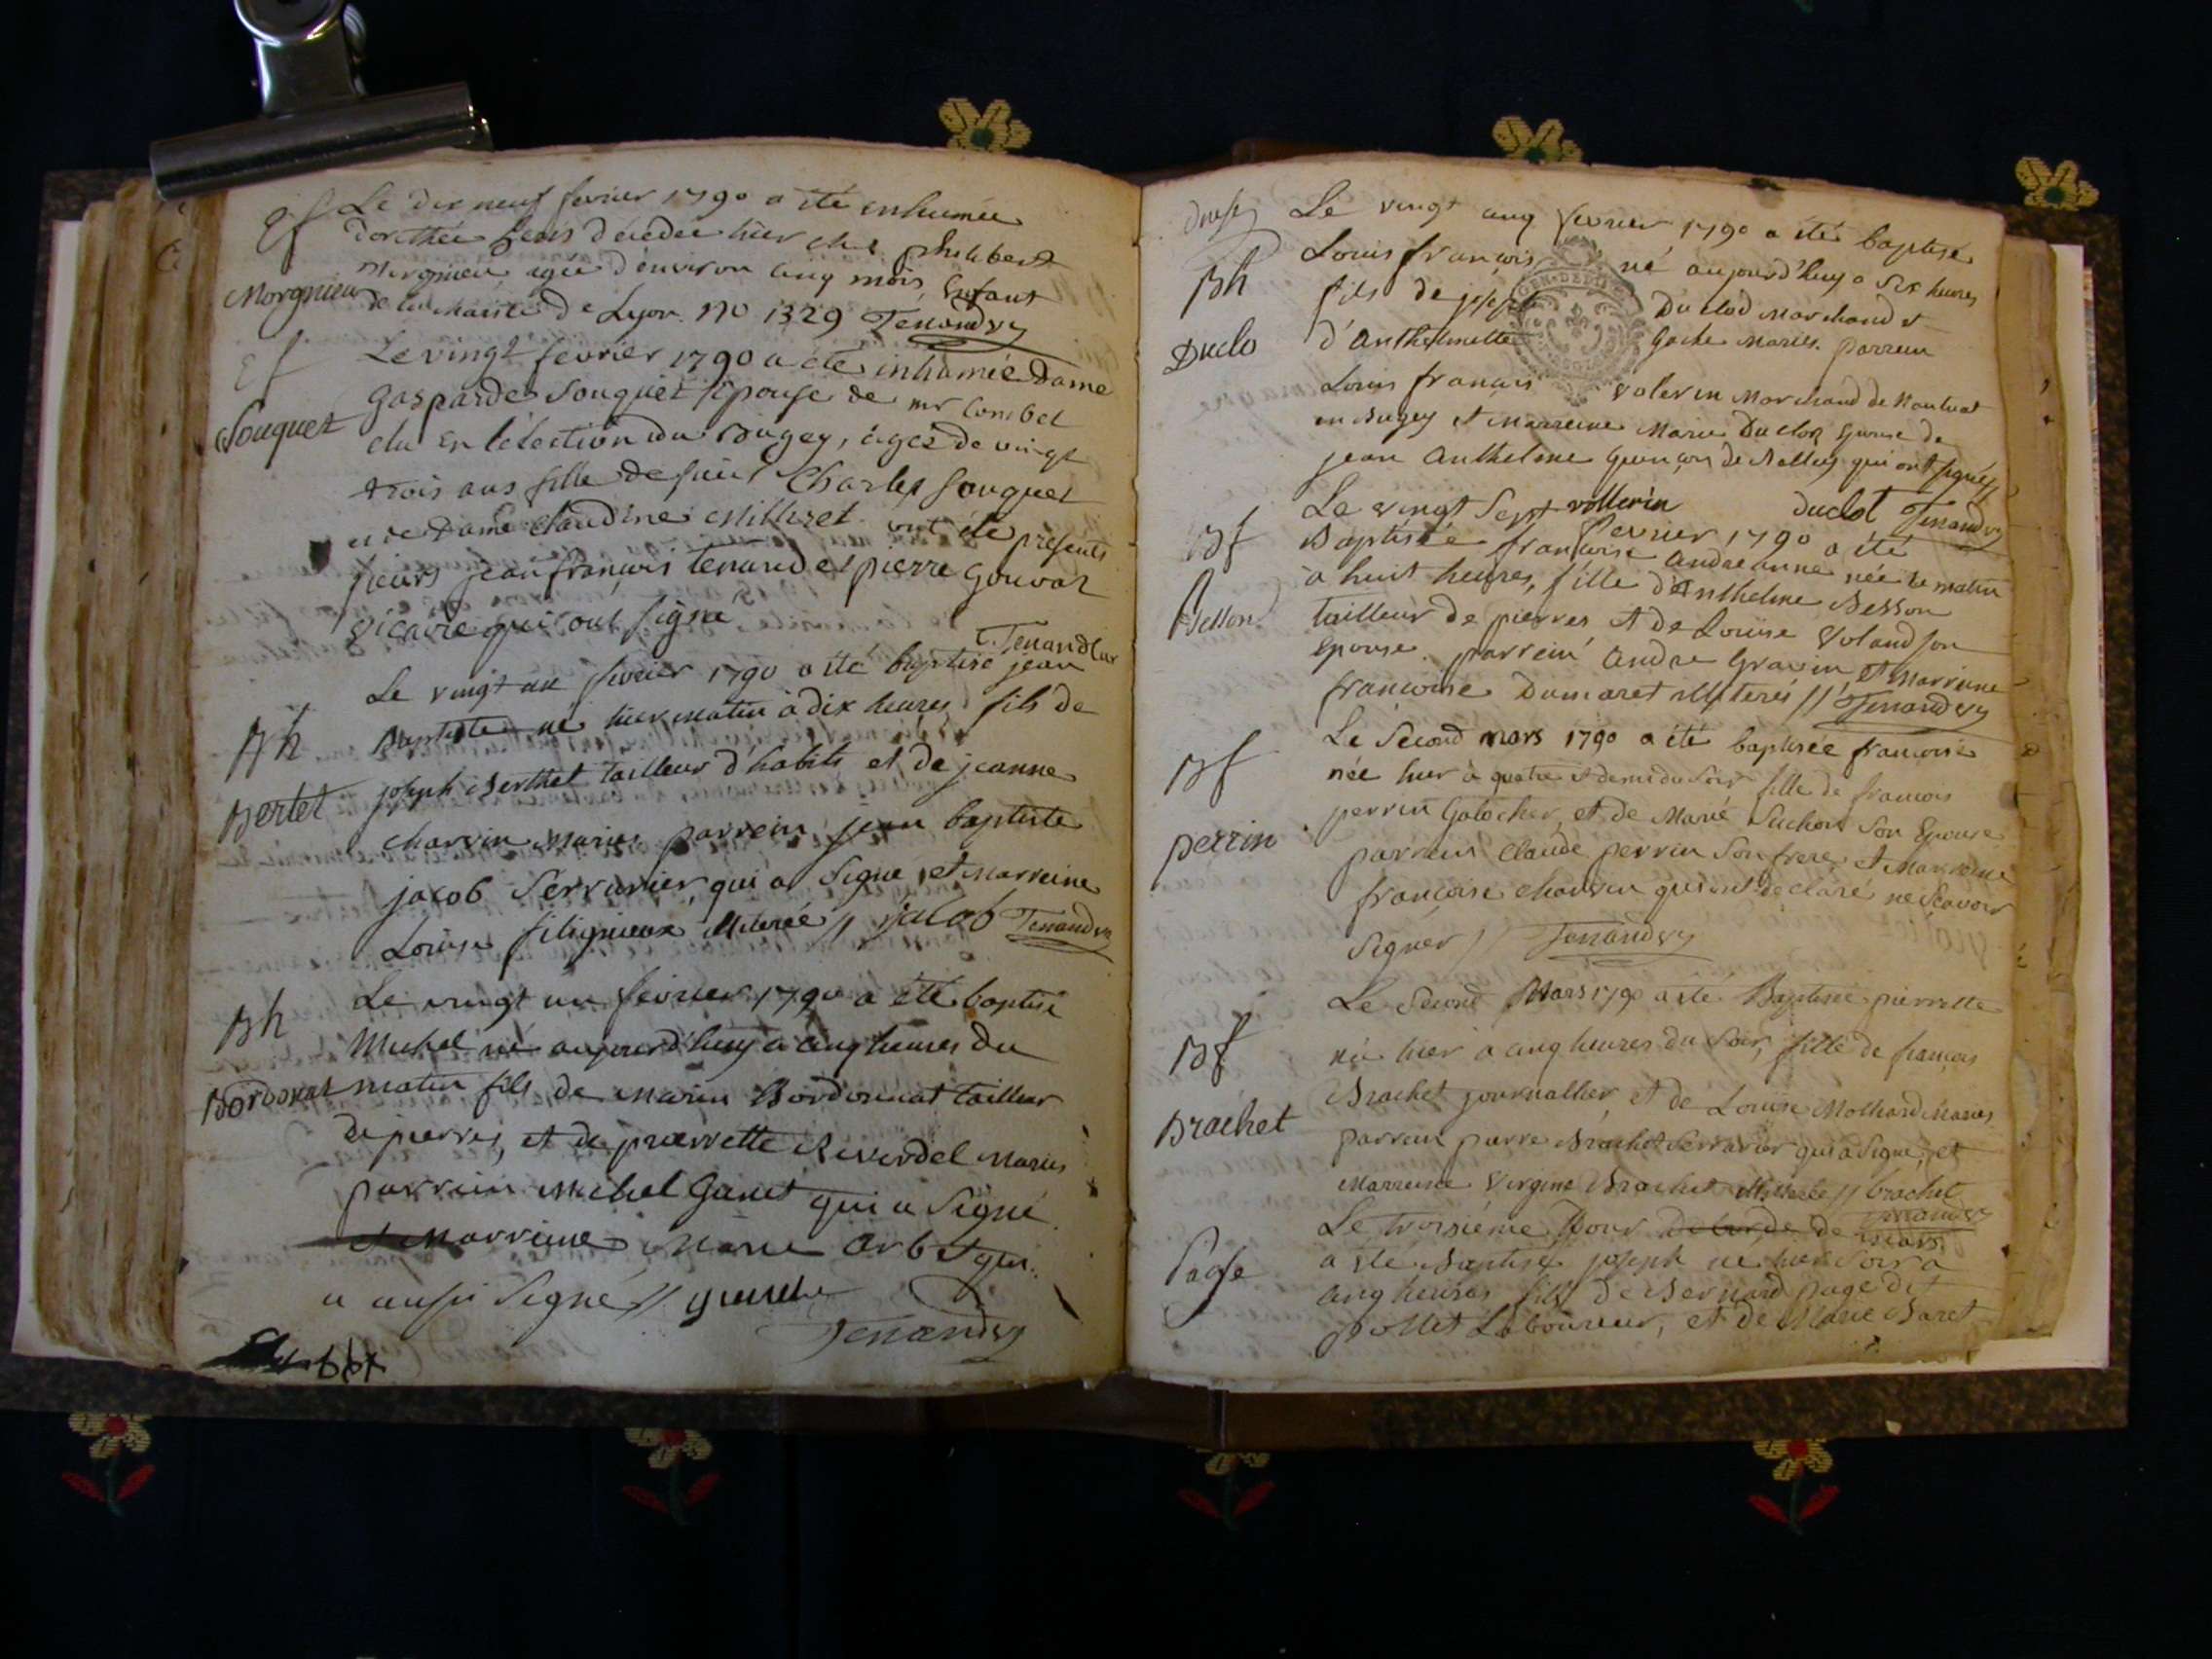 Ef
Le dix neuf fevrier 1790 a été inhumée
Dorothée decedée hier chés philibert
Morgnieu agée d'environ cinq mois, Enfant
Morgnieu
de la charité de Lyon. No 1329 Tenand
Ef
Le vingt fevrier 1790 a été inhumée Dame
Gasparde Souquet Epouse de mr Combet
Souquet
élu En l'élection du Bugey, agée de vingt
trois ans fille de feu Charles Souquet
et de Dame Claudine ont été présents
sieurs jean françois tenand et pierre Gouvoz
vicaire qui ont signé
Tenand Cur
Le vingt un fevrier 1790 a été baptisé jean
Bh
Baptiste né hier matin à dix heures fils de
Bertet
joseph Berthet tailleur d'habits et de jeanne
charvin mariés parrein jean baptiste
jacob Serrurier, qui a Signé, et Marreine
Louise filignieux illiterée // jacob Tenand
Bh
Le vingt un fevrier 1790 a été baptisé
Michel né aujourd'huy a cinq heures du
Bordonat
matin fils de Marin Bordonnat tailleur
de pierres, et de pierrette Reverdel Mariés
parrein Michel qui a Signé
et Marreine Marie
a aussi Signé //
Tenand
Le vingt cinq fevrier 1790 a été baptisé
Bh
Louis françois né aujourd'huy a Six heures
fils de joseph Duclod Marchand et
Duclo
d'Anthelmette Gache Mariés. parrein
Louis françois Marchand de Nantuat
en Bugey et Marreine Marie Duclos Epouse de
jean Anthelme de Belley qui ont signés //
vollerin duclot Tenand
Bf
Le vingt Sept fevrier 1790 a été
Baptisée françoise andréanne née le matin
Besson
a huit heures, fille d'Anthelme Besson
tailleur de pierres et de Louise Voland son
Epouse. parrein andré et Marreine
francoise Dumaret illiterés // Tenand
Le Second mars 1790 a été baptisée francoise
Bf
née hier à quatre et demi du soir fille de francois
perrin
perrin Galocher, et de Marie Suchon Son Epouse
parrein Claude perrin Son frere, et Marreine
françoise charvin qui ont declaré ne Scavoir
Signer // Tenand
Le Second Mars 1790 a été Baptisée pierrette
Bf
née hier a cinq heures du Soir, fille de françois
Brachet
Brachet journallier, et de Louise Molliard Mariés
parrein pierre Brachet Serrurier qui a Signé, et
Marreine Virginie Brachet illiterée // brachet
Tenand
Le troisiéme jour de mars
Page
a été Baptisé joseph né hier Soir a
cinq heures fils de Bernard page dit
pollet Laboureur, et de Marie Baret